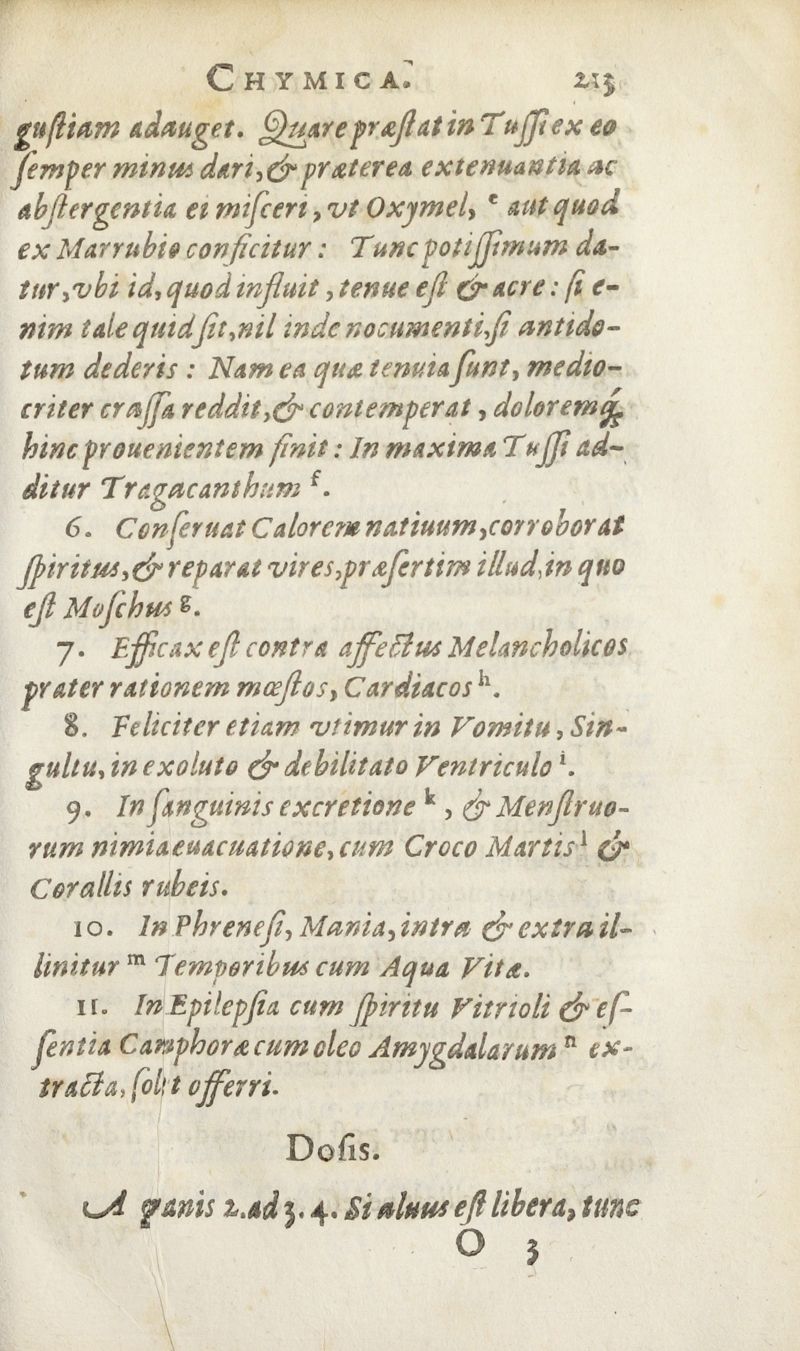 CHYMICA. 213
guſtiam adauget. Quare præſtat in Tuſſi ex eo
ſemper minus dari, & præterea extenuantia ac
abſtergentia ei miſceri, vt Oxymel, ᵉ aut quod
ex Marrubio conficitur: Tunc potiſſimum da-
tur, vbi id, quod influit, tenue eſt & acre: ſi e-
nim tale quid ſit, nil inde nocumenti, ſi antido-
tum dederis: Nam ea quæ tenuia ſunt, medio-
criter craſſa reddit, & contemperat, doloremq́;
hinc prouenientem finit: In maxima Tuſſi ad-
ditur Tragacanthum ᶠ.
6. Conſeruat Calorem natiuum, corroborat
ſpiritus, & reparat vires, præſertim illud, in quo
eſt Moſchus ᵍ.
7. Efficax eſt contra affectus Melancholicos
præter rationem mœſtos, Cardiacos ʰ.
8. Feliciter etiam vtimur in Vomitu, Sin-
gultu, in exoluto & debilitato Ventriculo ⁱ.
9. In ſanguinis excretione ᵏ, & Menſtruo-
rum nimia euacuatione, cum Croco Martis ˡ &
Corallis rubeis.
10. In Phreneſi, Mania, intra & extra il-
linitur ᵐ Temporibus cum Aqua Vitæ.
11. In Epilepſia cum ſpiritu Vitrioli & eſ-
ſentia Camphoræ cum oleo Amygdalarum ⁿ ex-
tracta, ſolet offerri.
Doſis.
A granis 2. ad 3. 4. Si aluus eſt libera, tunc
O 3